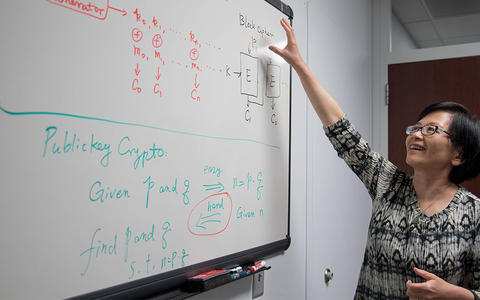 enerator
k₀, k₁, ... kₙ ...
⊕ ⊕ ⊕
m₀, m₁, ... mₙ ...
C₀ C₁ Cₙ
Block Cipher
P₁
K
E E
C₁ C₂
Publickey Crypto:
Given p and q easy n = p·q
hard Given n
find p and q
s.t. n = p·q